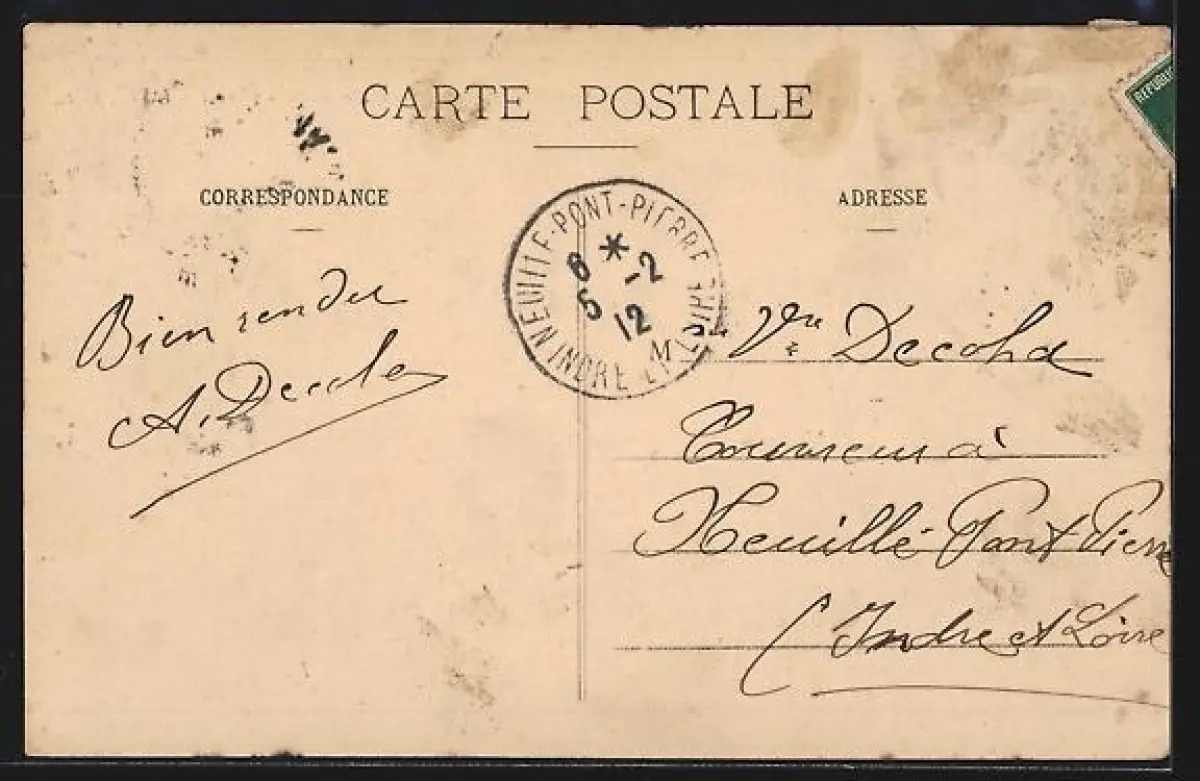 CARTE POSTALE
CORRESPONDANCE
ADRESSE
REPUBLI
NEUILLE-PONT-PIERRE
INDRE ET LOIRE
8 * -2
5 12
M
Bien rendu
A. Decola
Vve
Tourneur à
Neuillé-Pont-Pierre
(Indre et Loire